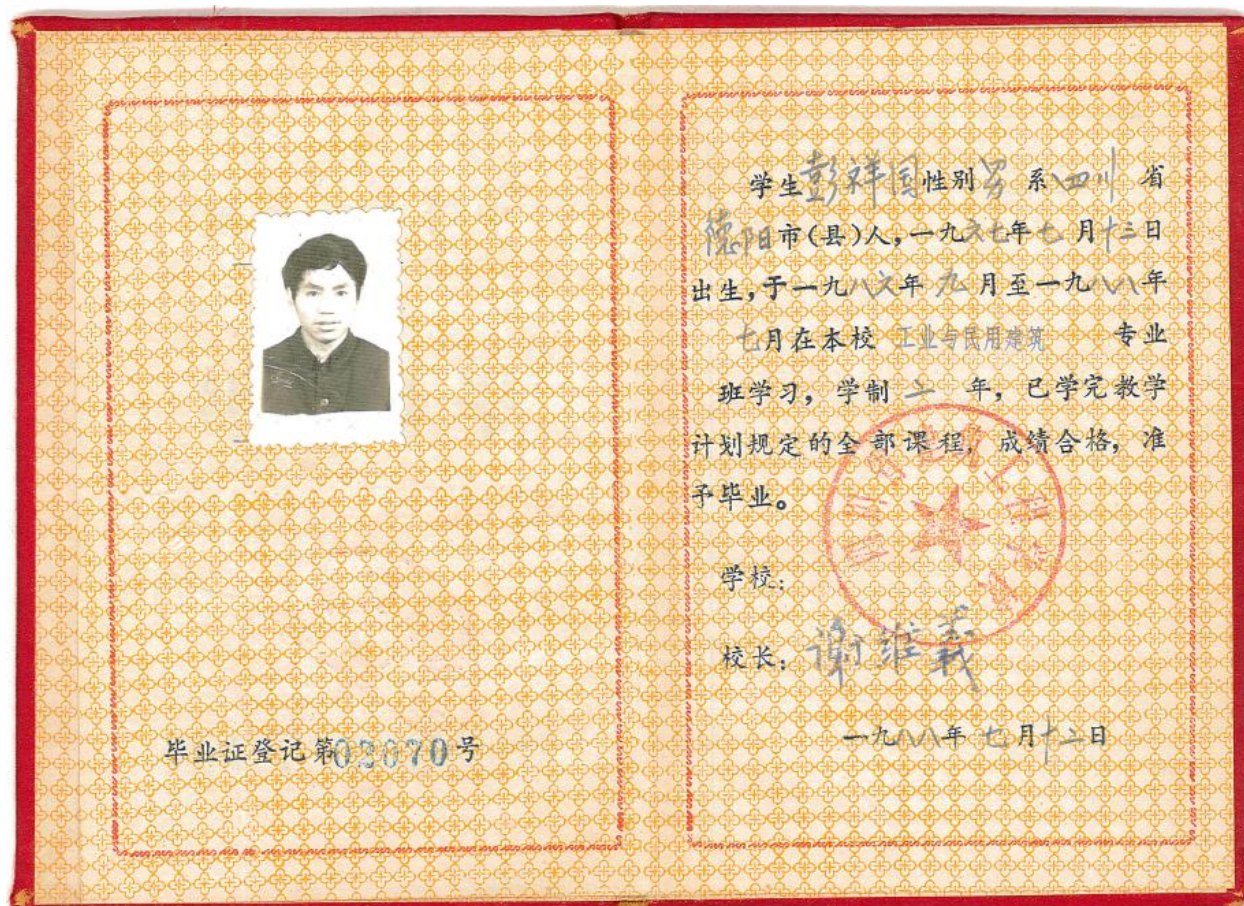 毕业证登记第02070号
学生彭祥国性别男 系四川省
德阳市(县)人,一九六七年七月十三日
出生,于一九八六年九月至一九八八年
七月在本校 工业与民用建筑 专业
班学习,学制二年,已学完教学
计划规定的全部课程,成绩合格,准
予毕业。
学校:
校长:谢维義
一九八八年七月十二日